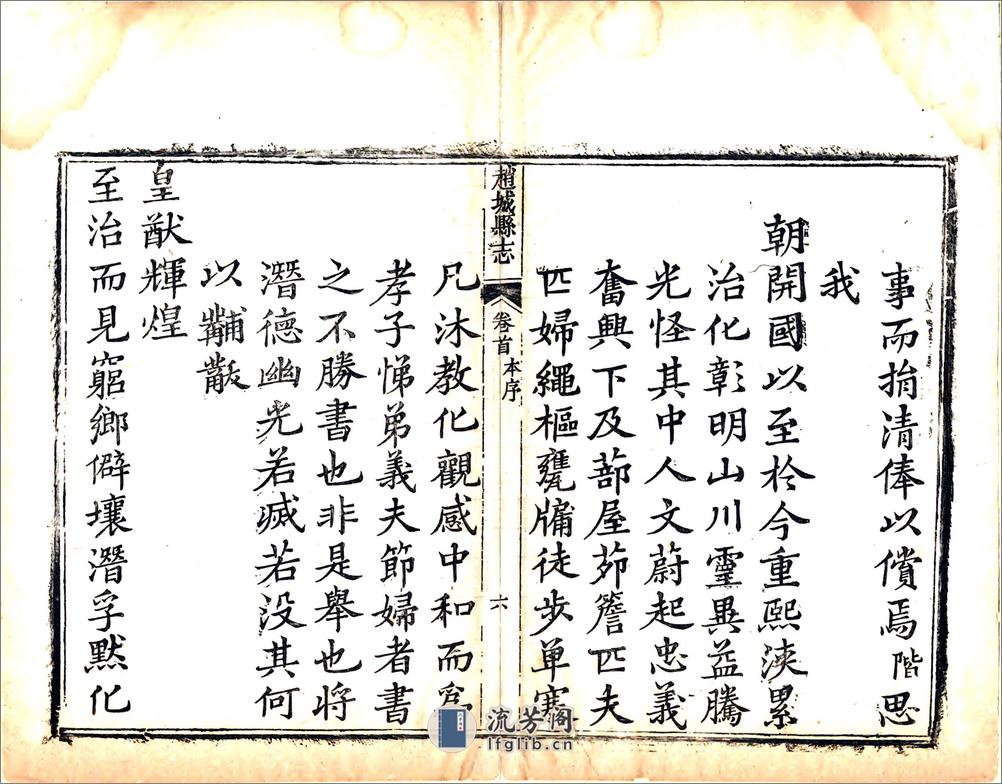 事而捐清俸以償焉階思
我
朝開國以至於今重熙浹累
治化彰明山川靈異益騰
光怪其中人文蔚起忠義
奮興下及蔀屋茆簷匹夫
匹婦繩樞甕牖徒步單寒
趙城縣志
卷首
本序
六
凡沐教化觀感中和而為
孝子悌弟義夫節婦者書
之不勝書也非是舉也將
潛德幽光若滅若没其何
以黼黻
皇猷輝煌
至治而見窮鄉僻壤潛孚默化
流芳阁
lfglib.cn